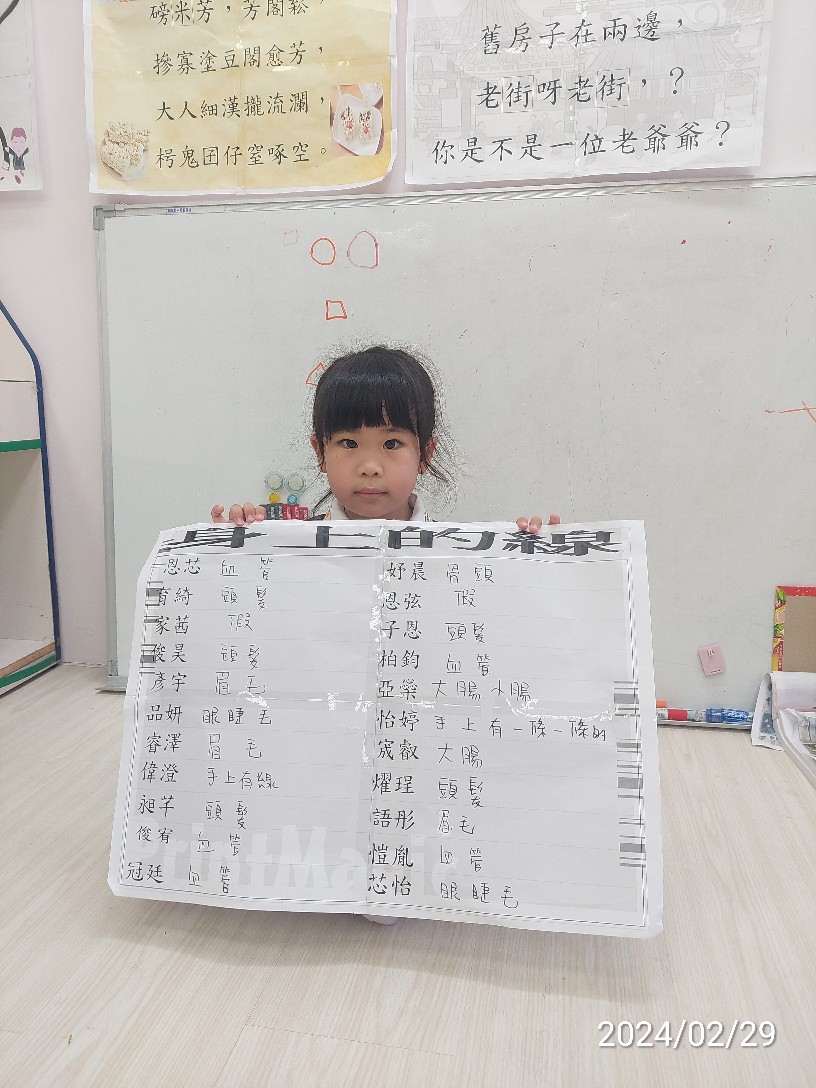 磅米芳，芳閣鬆，
摻寡塗豆閣愈芳，
大人細漢攏流瀾，
枵鬼囝仔窒啄空。
舊房子在兩邊，
老街呀老街，？
你是不是一位老爺爺？
身上的線
恩芯 血管
育綺 頭髮
家茜 假
俊昊 頭髮
彥宇 眉毛
品妍 眼睫毛
睿澤 眉毛
偉澄 手上有線
昶芊 頭髮
俊宥 血管
冠廷 血管
妤晨 骨頭
恩弦 假
子恩 頭髮
柏鈞 血管
亞樂 大腸 小腸
怡婷 手上有一條一條的
宬叡 大腸
燿珵 頭髮
語彤 眉毛
愷胤 血管
芯怡 眼睫毛
2024/02/29